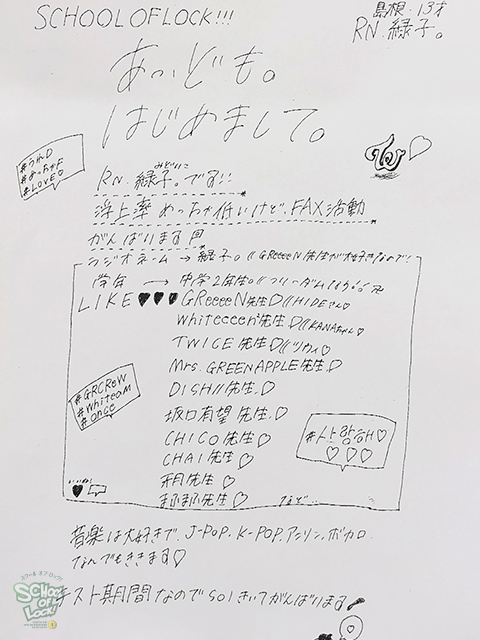 SCHOOL OF LOCK!!!
島根・13才
RN.緑子。
あっ、ども。
はじめまして。
#うれD
#めっちゃF
#LOVE♡
みどりこ
RN.緑子。です!!
浮上率めっちゃ低いけど、FAX活動
がんばります
ラジオネーム → 緑子。 GReeeeN先生が大好きなので!
学年 → 中学2年生。
LIKE♥♥♥ GReeeeN先生♡ HIDEさん♡
whiteeeen先生♡ KANAちゃん♡
TWICE 先生♡ ツウィ♡
Mrs. GREEN APPLE先生♡
DISH// 先生♡
坂口有望 先生♡
CHICO 先生♡
CHAI 先生♡
先生♡
まふまふ先生♡ など…
#GRCReW
#whiteam
#once
#사랑해♡
♡♡♡
いいね!
音楽は大好きで、J-POP、K-POP、アニソン、ボカロ
なんでもききます♡
テスト期間なのでSOLきいてがんばります
スクール オブ ロック!
SCHOOL OF LOCK!